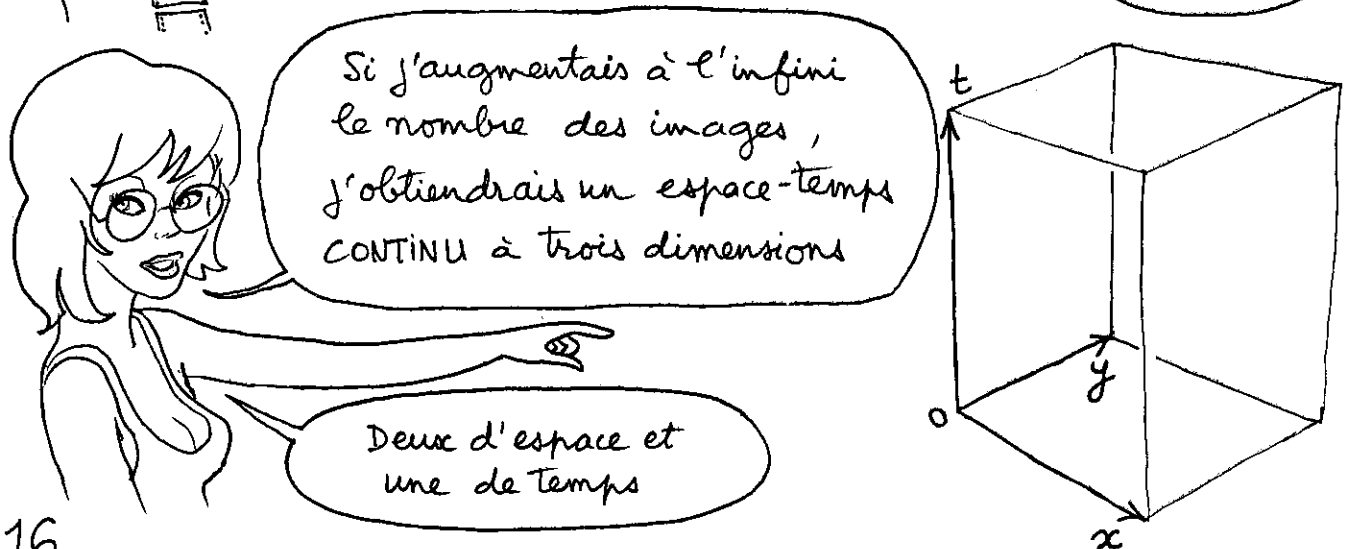 Si j'augmentais à l'infini
le nombre des images,
j'obtiendrais un espace-temps
CONTINU à trois dimensions
t
y
o
x
Deux d'espace et
une de temps
16